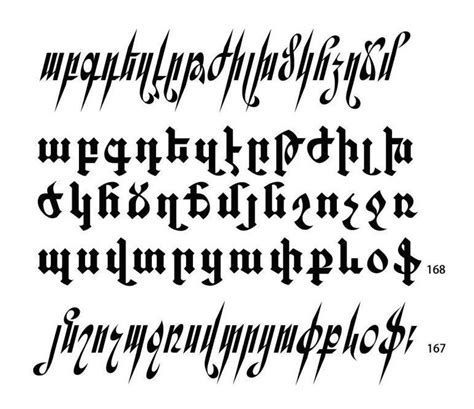 աբգդեզէըթժիլխծկհձղճմ
աբգդեզէըթժիլխ
ծկհձղճմյնշոչջռ
պսվտրցւփքևօֆ 168
յնշոչպջռսվտրցւփքևօֆ: 167